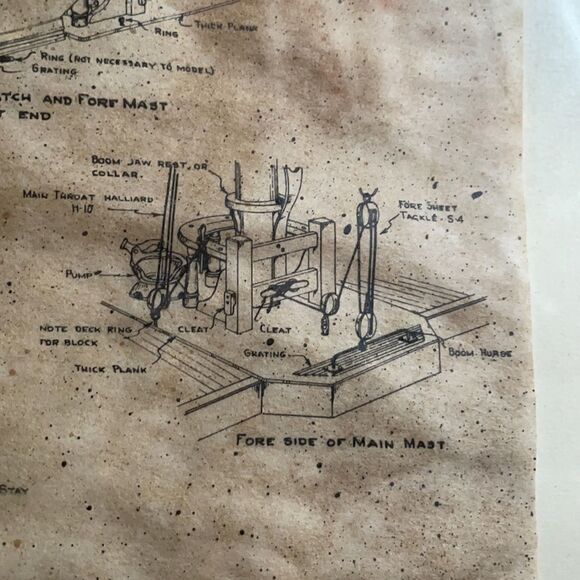 THICK PLANK
RING
RING (NOT NECESSARY TO MODEL)
GRATING
TCH AND FORE MAST
T END
BOOM JAW REST, OR
COLLAR.
MAIN THROAT HALLIARD
H-10
FORE SHEET
TACKLE S-4
PUMP
NOTE DECK RING
FOR BLOCK
CLEAT
CLEAT
GRATING
BOOM HORSE
THICK PLANK
FORE SIDE OF MAIN MAST
STAY